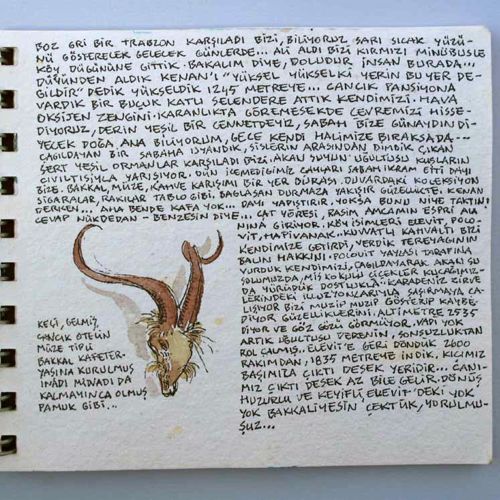 BOZ GRİ BİR TRABZON KARŞILADI BİZİ, BİLİYORUZ SARI SICAK YÜZÜ-
NÜ GÖSTERECEK GELECEK GÜNLERDE... ALİ ALDI BİZİ KIRMIZI MİNÜBÜSLE
KÖY DÜĞÜNÜNE GİTTİK. BAKALIM DİYE, DOLUDUR İNSAN BURADA...
DÜĞÜNDEN ALDIK KENAN'I "YÜKSEL YÜKSELKİ YERİN BU YER DE-
ĞİLDİR" DEDİK YÜKSELDİK 1245 METREYE... CANCIK PANSİYONA
VARDIK BİR BUÇUK KATLI SELENDERE ATTIK KENDİMİZİ. HAVA
OKSİJEN ZENGİNİ. KARANLIKTA GÖREMESEKDE ÇEVREMİZİ HİSSE-
DİYORUZ, DERİN YEŞİL BİR CENNETDEYİZ, SABAH BİZE GÜNAYDIN Dİ-
YECEK DOĞA ANA BİLİYORUM, GECE KENDİ HALİMİZE BIRAKSADA...
ÇAĞILDAYAN BİR SABAHA UYANDIK, SİSLERİN ARASINDAN DİMBİK ÇIKAN
SERT YEŞİL ORMANLAR KARŞILADI BİZİ. AKAN SUYUN UĞULTUSU KUŞLARIN
CIVILTISIYLA YARIŞIYOR. DÜN İÇEMEDİĞİMİZ ÇAYLARI SABAH İKRAM ETTİ DAYI
BİZE. BAKKAL, MÜZE, KAHVE KARIŞIMI BİR YER BURASI. DUVARDAKİ KOLLEKSİYON
SİGARALAR, RAKILAR TABLO GİBİ. BAĞLASAN DURMAZA YAKIŞIR GÜZELLİKTE. KENAN
DERKEN... AMA BENDE KAFA YOK... DAYI YAPIŞTIRIR, YOKSA BUNU NİYE TAKTIN
CEVAP NÜKDEDAN - BENZESİN DİYE... ÇAT YÖRESİ, RASIM, AMCAMIN ESPRİ ALA-
NINA GİRİYOR. KÖY İSİMLERİ ELEVİT, POLO
VİT, HAPİVANAK. KUVVATLI KAHVALTI BİZİ
KENDİMİZE GETİRDİ, VERDİK TEREYAĞININ
BALIN HAKKINI. POLOVİT YAYLASI TARAFINA
VURDUK KENDİMİZİ, ÇAĞILDAYARAK AKAN SU
SOLUMUZDA, MİS KOKULU ÇİÇEKLER KUCAĞIMIZ-
DA YÜRÜDÜK DOSTLUKLA. KARADENİZ ZİRVE
LERİNDEKİ İLLÜZYONLARIYLA ŞAŞIRMAYA ÇA-
LIŞIYOR BİZİ MUZİP MUZİP GÖSTERİP KAYBE-
DİYOR GÜZELLİKLERİNİ. ALTİMETRE 2535
DİYOR VE GÖZ GÖZÜ GÖRMÜYOR. VADİ YOK
ARTIK UĞULTUSU YEDEĞİNİ, SONSUZLUKTAN
ROL ÇALMIŞ. ELEVİT'E GERİ DÖNDÜK 2600
RAKIMDAN, 1835 METREYE İNDİK, KIÇIMIZ
BAŞIMIZA ÇIKTI DESEK YERİDİR... CANI-
MIZ ÇIKTI DESEK AZ BİLE GELİR. DÖNÜŞ
HUZURLU VE KEYİFLİ, ELEVİT'DEKİ YOK
YOK BAKKALİYESİN ÇEKTÜK, YORULMU-
ŞUZ...
KEÇİ, GELMİŞ,
CANCIK OTELİN
MÜZE TİPLİ
BAKKAL KAFETER-
YASINA KURULMUŞ
İNADI MİNADI DA
KALMAYINCA OLMUŞ
PAMUK GİBİ...